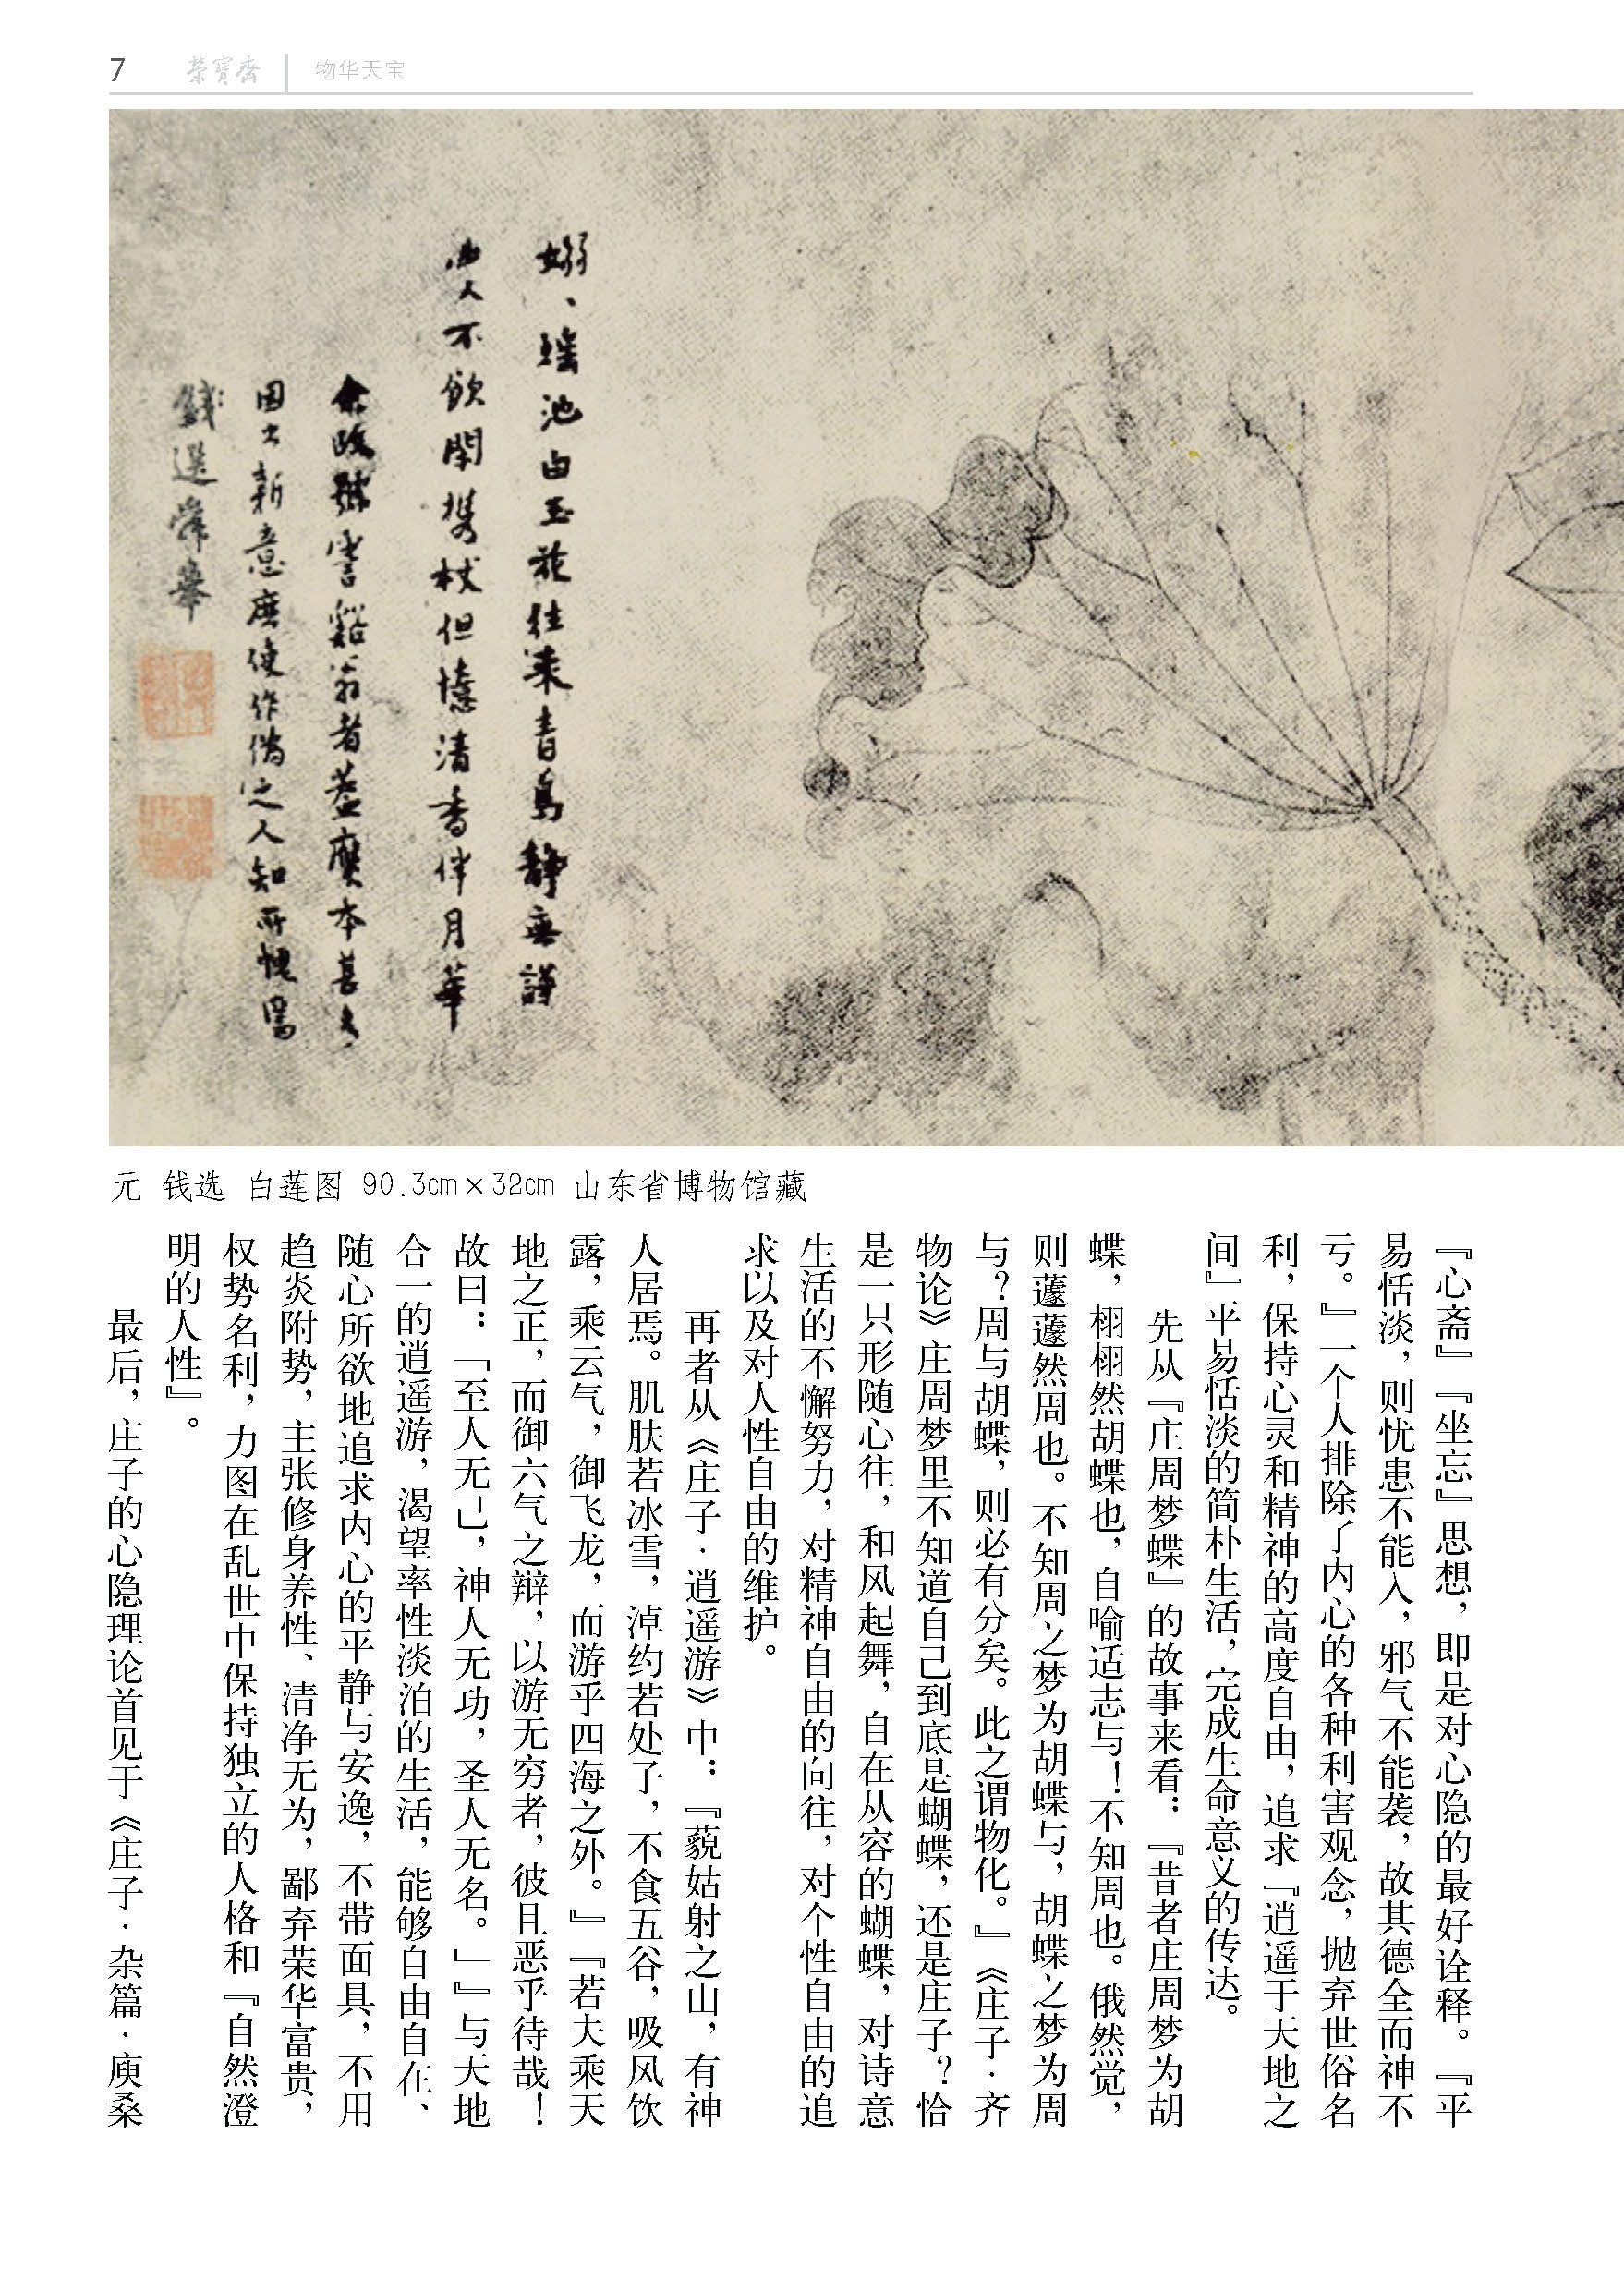 7 榮寶齋 物华天宝
嫋、瑶池白玉花往来青鳥静無譁
幽人不飲閑携杖但憶清香伴月華
余改號霅谿翁者蓋贋本甚多
因出新意庶使作偽之人知所愧焉
錢選舜舉
元 钱选 白莲图 90.3cm×32cm 山东省博物馆藏
『心斋』『坐忘』思想，即是对心隐的最好诠释。『平
易恬淡，则忧患不能入，邪气不能袭，故其德全而神不
亏。』一个人排除了内心的各种利害观念，抛弃世俗名
利，保持心灵和精神的高度自由，追求『逍遥于天地之
间』平易恬淡的简朴生活，完成生命意义的传达。
先从『庄周梦蝶』的故事来看：『昔者庄周梦为胡
蝶，栩栩然胡蝶也，自喻适志与！不知周也。俄然觉，
则蘧蘧然周也。不知周之梦为胡蝶与，胡蝶之梦为周
与？周与胡蝶，则必有分矣。此之谓物化。』《庄子·齐
物论》庄周梦里不知道自己到底是蝴蝶，还是庄子？恰
是一只形随心往，和风起舞，自在从容的蝴蝶，对诗意
生活的不懈努力，对精神自由的向往，对个性自由的追
求以及对人性自由的维护。
再者从《庄子·逍遥游》中：『藐姑射之山，有神
人居焉。肌肤若冰雪，淖约若处子，不食五谷，吸风饮
露，乘云气，御飞龙，而游乎四海之外。』『若夫乘天
地之正，而御六气之辩，以游无穷者，彼且恶乎待哉！
故曰：「至人无己，神人无功，圣人无名。」』与天地
合一的逍遥游，渴望率性淡泊的生活，能够自由自在、
随心所欲地追求内心的平静与安逸，不带面具，不用
趋炎附势，主张修身养性、清净无为，鄙弃荣华富贵，
权势名利，力图在乱世中保持独立的人格和『自然澄
明的人性』。
最后，庄子的心隐理论首见于《庄子·杂篇·庚桑